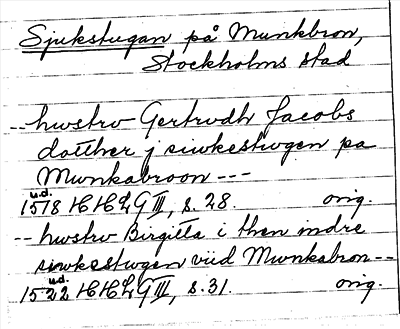 Sjukstugan på Munkbron,
Stockholms stad
-- hwstrv Gertrvdh Jacobs
dotther j siwkestwgen pa
Mwnkabroon ---
u.d.
1518 HHLG III, s. 28. orig.
-- hwstrv Birgitta i then indre
siwkestwgen viid Mwnkabron --
u.d.
1522 HHLG III, s. 31. orig.